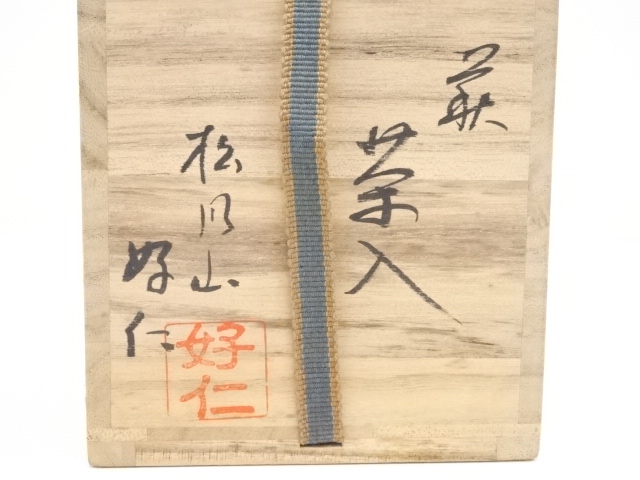 萩
茶入
松月山
好仁
好仁